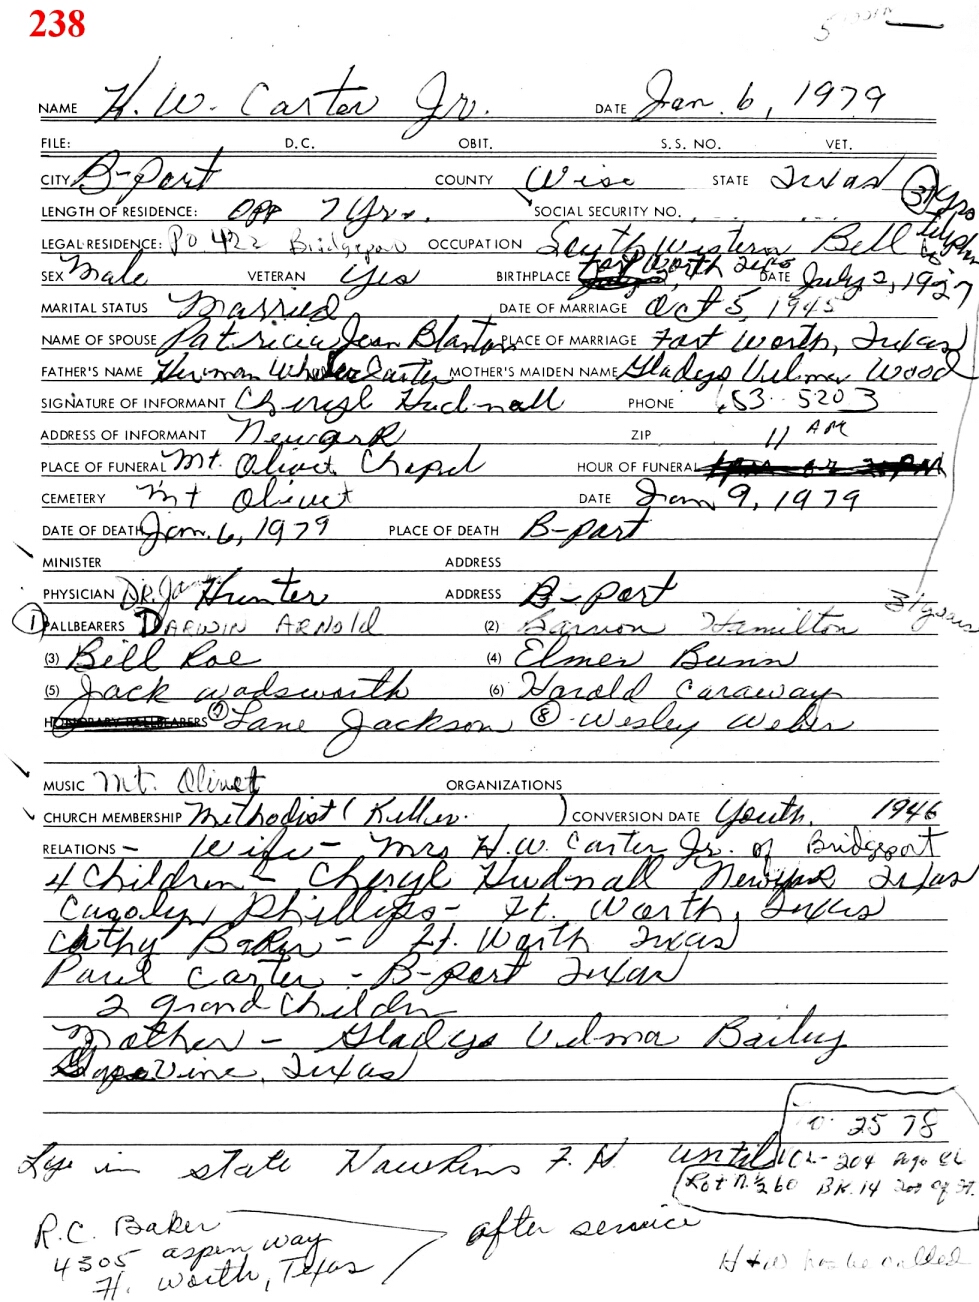 238
NAME H. W. Carter Jr. DATE Jan. 6, 1979
FILE: D.C. OBIT. S.S. NO. VET.
CITY B-port COUNTY Wise STATE Texas
LENGTH OF RESIDENCE: app 7 Yrs. SOCIAL SECURITY NO.
LEGAL RESIDENCE: PO 422 Bridgeport OCCUPATION South Western Bell
SEX Male VETERAN Yes BIRTHPLACE Fort Worth Texas DATE July 2, 1927
MARITAL STATUS Married DATE OF MARRIAGE Oct 5, 1945
NAME OF SPOUSE Patricia Jean Blanton PLACE OF MARRIAGE Fort Worth, Texas
FATHER'S NAME Herman Carter MOTHER'S MAIDEN NAME Gladys Velma Wood
SIGNATURE OF INFORMANT Cheryl Hudnall PHONE 5203
ADDRESS OF INFORMANT Newark ZIP 11 AM
PLACE OF FUNERAL Mt. Olivet Chapel HOUR OF FUNERAL
CEMETERY Mt Olivet DATE Jan 9, 1979
DATE OF DEATH Jan. 6, 1979 PLACE OF DEATH B-port
MINISTER ADDRESS
PHYSICIAN DR. Hunter ADDRESS B-port
31 years
(1) PALLBEARERS DARWIN ARNOLD (2) Hamilton
(3) Bill Roe (4) Elmer Bunn
(5) Jack Wadsworth (6) Harold Caraway
HONORARY PALLBEARERS (7) Lane Jackson (8) Wesley Weber
MUSIC Mt. Olivet ORGANIZATIONS
CHURCH MEMBERSHIP Methodist (Keller ) CONVERSION DATE Youth, 1946
RELATIONS - Wife - Mrs H.W. Carter Jr. of Bridgeport
4 Children - Cheryl Hudnall Newark Texas
Carolyn Phillips - Ft. Worth, Texas
Cathy Baker - Ft. Worth Texas
Paul Carter - B-port Texas
2 grand Childrn
Mother - Gladys Velma Bailey
GrapeVine, Texas
25 78
Lye in state Hawkins F. H. until
204
Lot BK. 14
R.C. Baker
4305 aspen way
Ft. Worth, Texas
after service